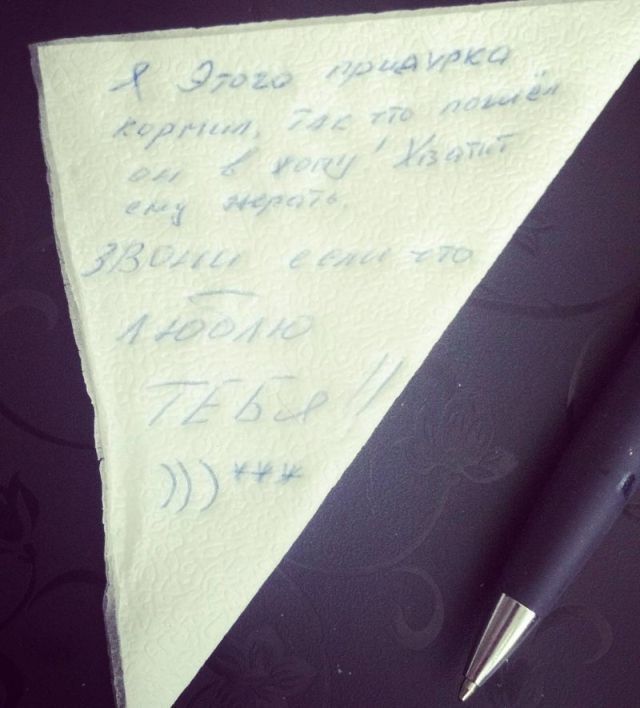 Я Этого придурка
кормил, так что пошёл
он в жопу! Хватит
ему жрать.
ЗВОНИ если что
люблю
ТЕБЯ!!
)))***